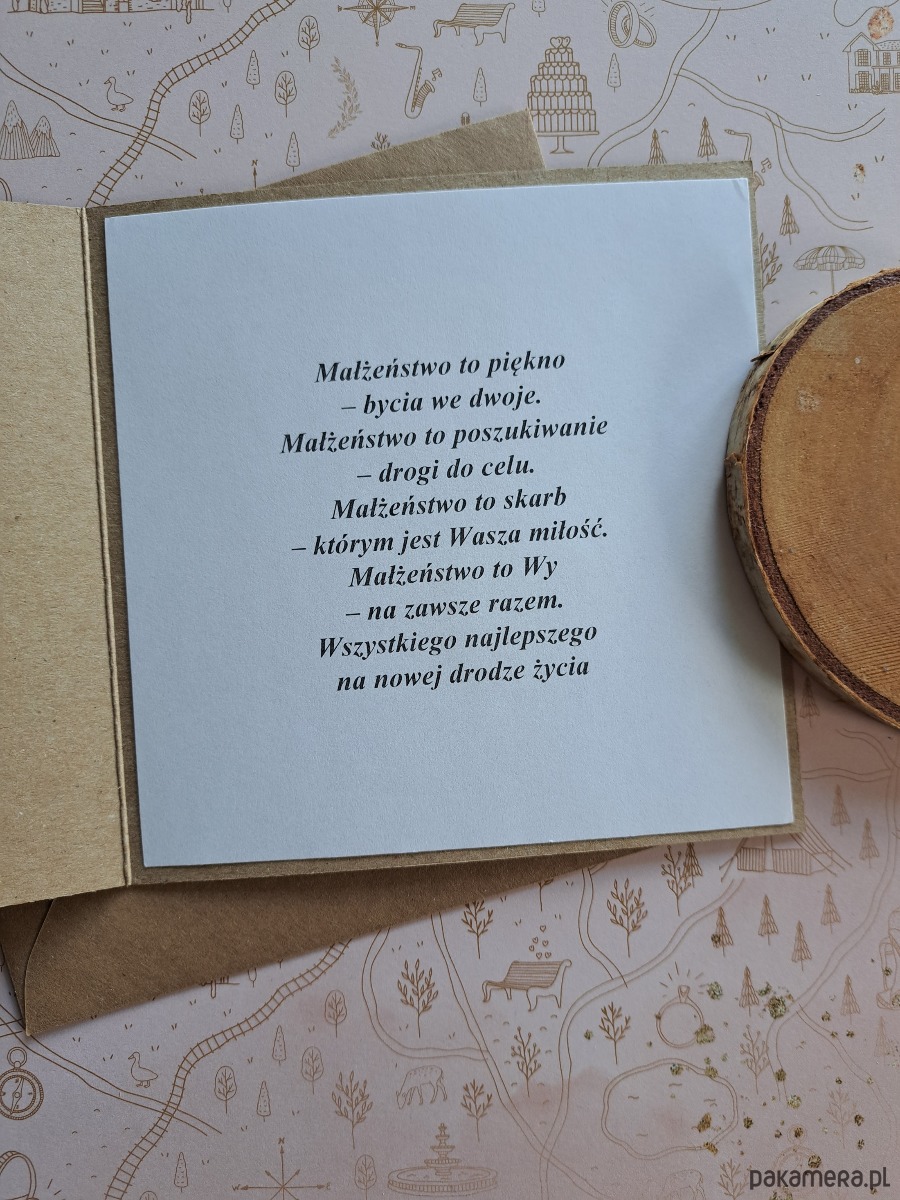 Małżeństwo to piękno
– bycia we dwoje.
Małżeństwo to poszukiwanie
– drogi do celu.
Małżeństwo to skarb
– którym jest Wasza miłość.
Małżeństwo to Wy
– na zawsze razem.
Wszystkiego najlepszego
na nowej drodze życia
pakamera.pl